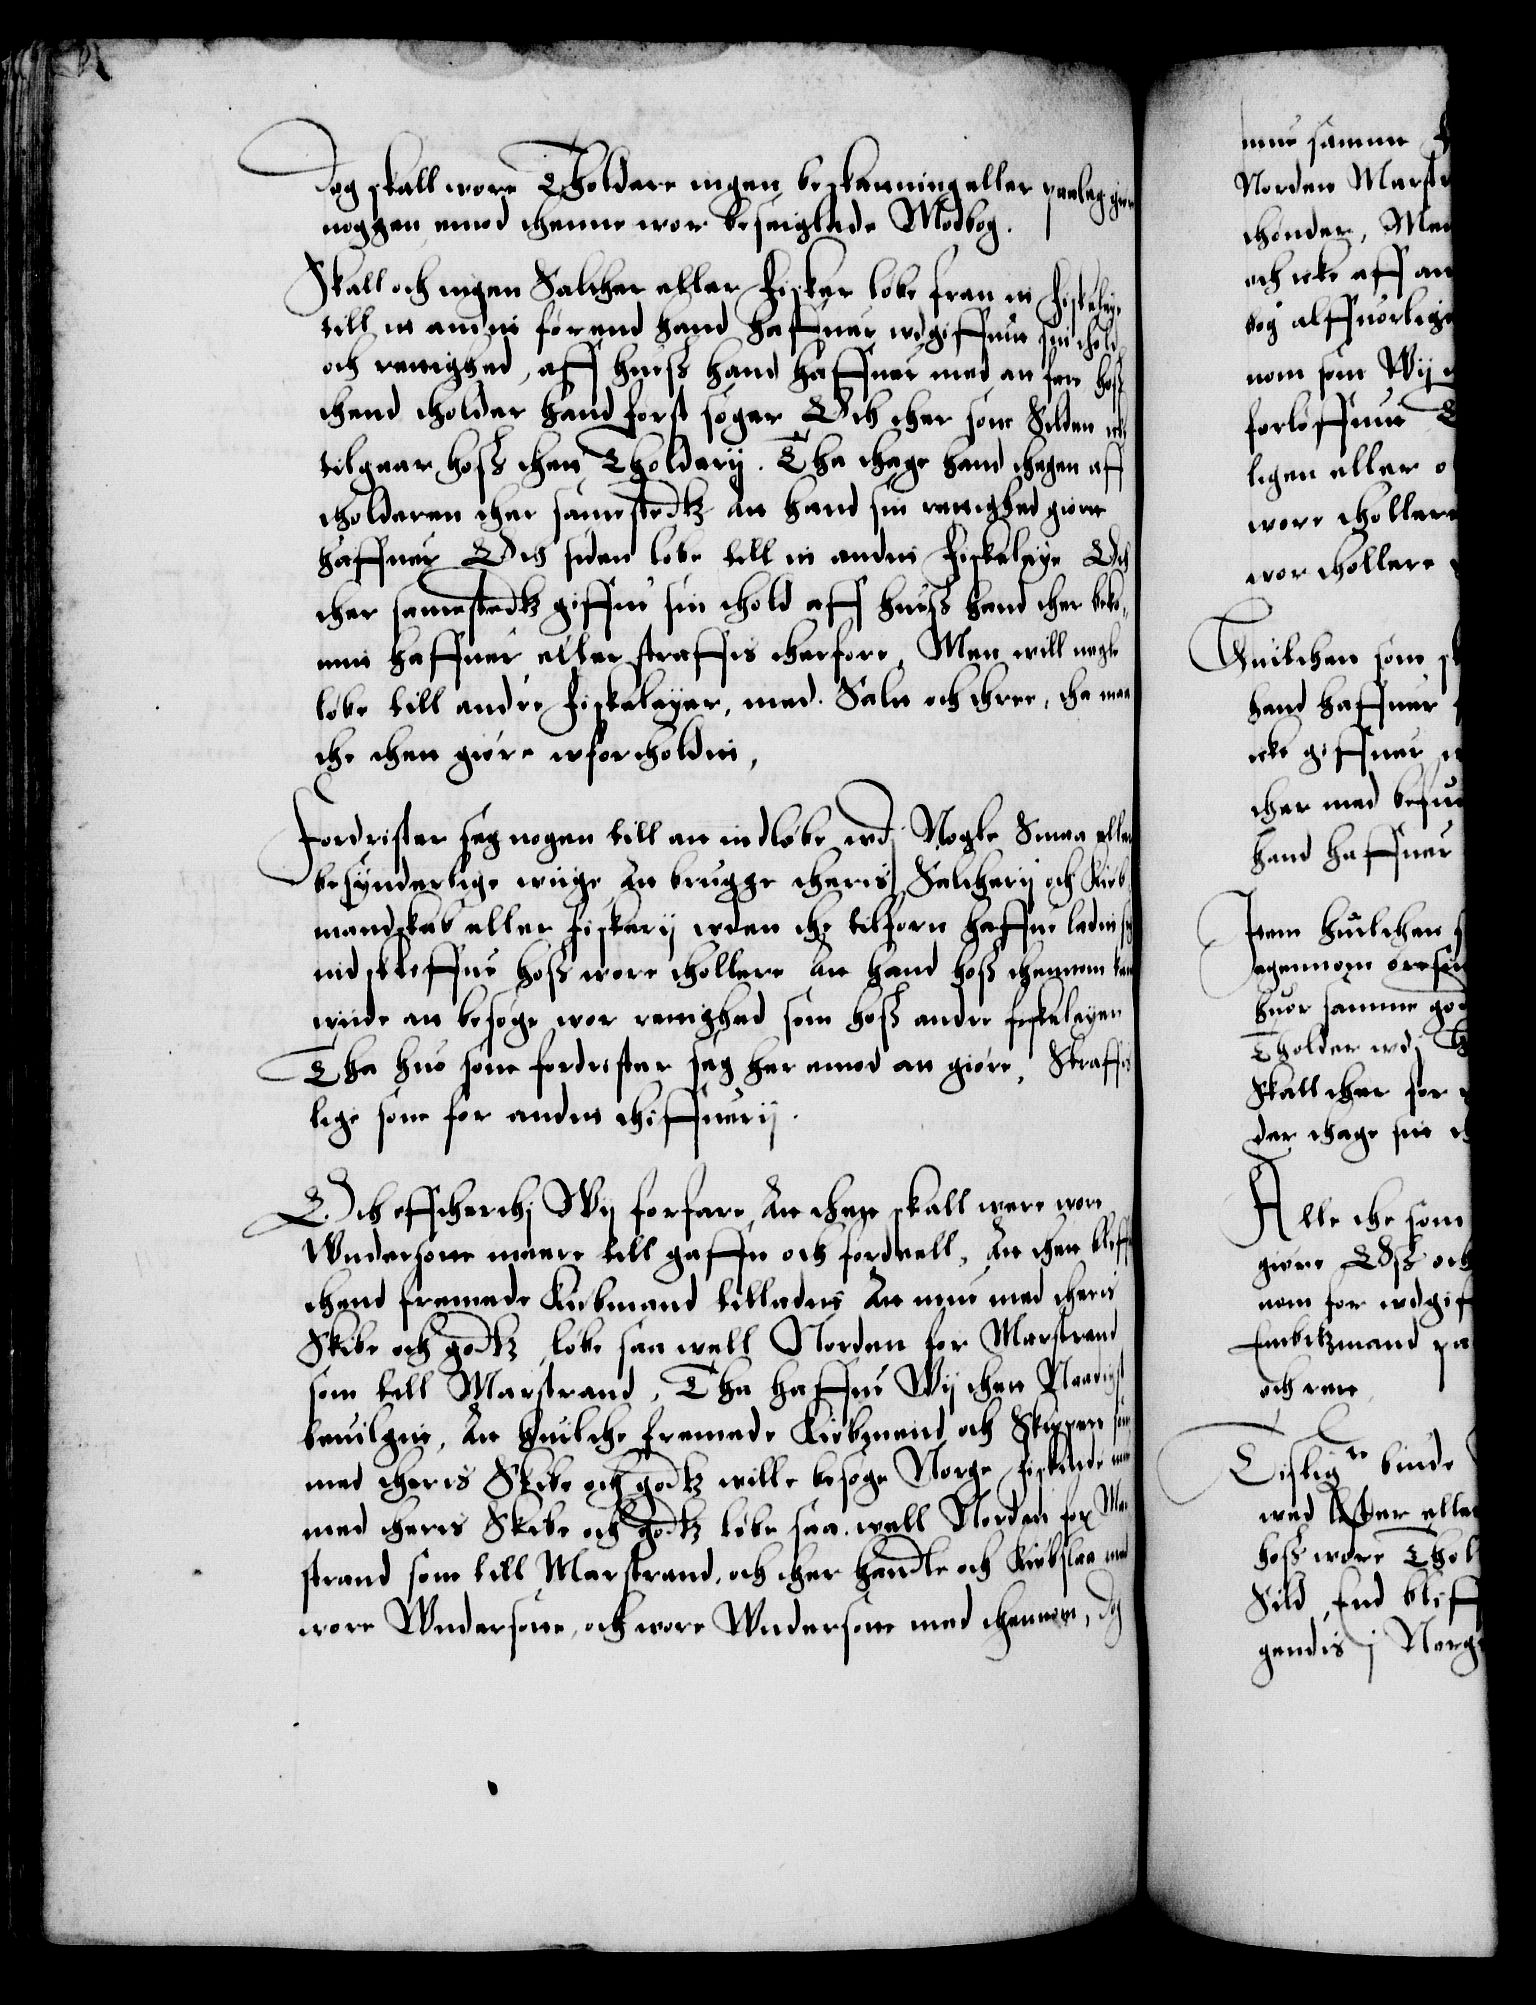 Dog skall wore Tholdere ingen beskatning eller paaleg giøre
noggen emod thenne wor beseiglede Modbog.
Skall och ingen Salther eller Fisker løbe fran itt Fiskeleye
till itt andit førend hand haffuer wdgiffuit sin thold
och rettighed, aff huess hand haffuer med att fare hoss
thend tholder hand først søger Och ther som Silden icke
tilgaar hoss then Tholderij. Tha thage hand thegen aff
tholderen ther samestedtz att hand sin rettighed giort
haffuer Och siden løbe till itt andit Fiskeleye Och
ther samestedtz giffue sin thold aff huess hand ther beko-
mmit haffuer eller straffis therfore, Men will nogle
løbe till andre Fiskeleyer, med Salte och three, tha maa
the thet giøre wfortholdit,
Fordrister seg nogen till att indløbe wdj Nogle Smaa eller
besynderlige wiige At brugge theris Saltherij och Kiøb
mandskab eller Fiskerij wden the tilforn haffue ladet seg
indskriffue hoss wore thollere At hand hoss thennom kan
wiide att besøge wor rettighed som hoss andre fiskeleyer
Tha huo som fordrister seg her emod att giøre, Straffis
lige som for andit thiffuerij.
Och effthertj Wij forfare, At thett skall were wore
Wndersotte meere till gaffn och fordeell, At thet bliffr
thend fremede Kiøbmand tilladit At mue med theris
Skibe och godtz løbe saa well Norden for Marstrand
som till Marstrand, Tha haffue Wij thett Naadigst
beuilget, At huilche fremede Kiøbmend och Skippere som
med theris Skibe och godtz wille besøge Norge fiskende mue
med theris Skibe och godtz løbe saa well Norden for Mar
strand som till Marstrand, och ther handle och Kiøbslaa med
wore Wndersotte, och wore Wndersotte med thennom, dog
mue samme
Norden Marstr
thønder, Men
och icke aff an
dog alffuorlige
nom som Wij
forløffuit
ligen eller
wore thollere
wor thollere
Huilchen som
hand haffuer
icke giffuer
ther med befu
hand haffuer
Item huilchen
igennom øresu
huor samme god
Tholder wdj
Skall ther for
der thage sin
Alle the som
giøre Oss och
nom for wdgif
Embitzmand pa
och rett
Tislige binde
wed Aster eller
hoss wore Thol
Sild, End bliff
gendis j Norge